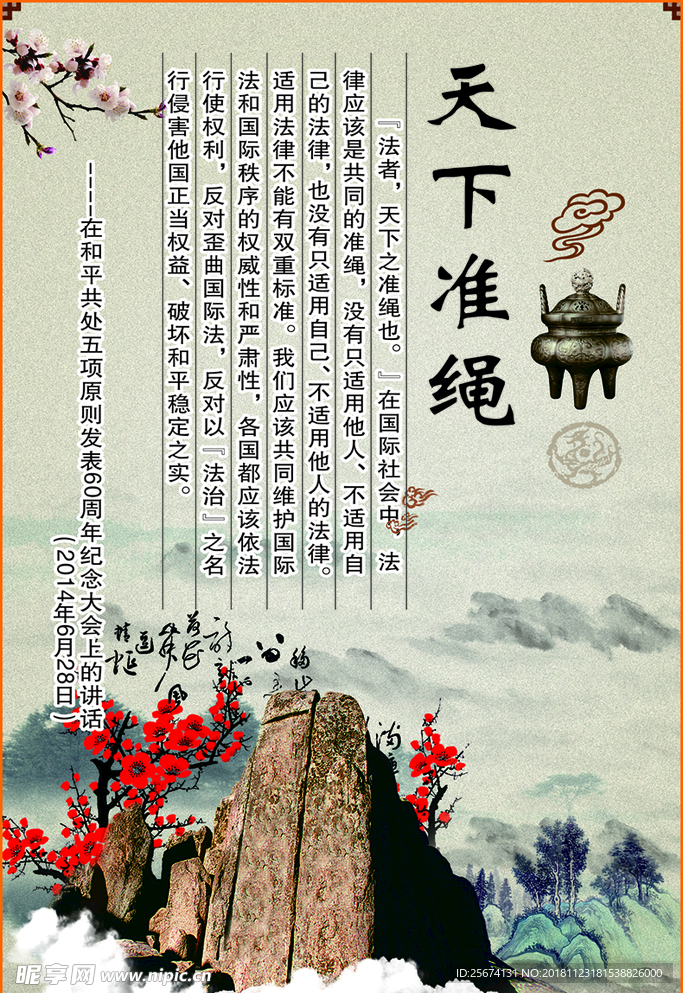 天下准绳
『法者，天下之准绳也。』在国际社会中，法
律应该是共同的准绳，没有只适用他人、不适用自
己的法律，也没有只适用自己、不适用他人的法律。
适用法律不能有双重标准。我们应该共同维护国际
法和国际秩序的权威性和严肃性，各国都应该依法
行使权利，反对歪曲国际法，反对以『法治』之名
行侵害他国正当权益、破坏和平稳定之实。
----在和平共处五项原则发表60周年纪念大会上的讲话
(2014年6月28日)
昵享网 www.nipic.cn
ID:25674131 NO:20181123181538826000